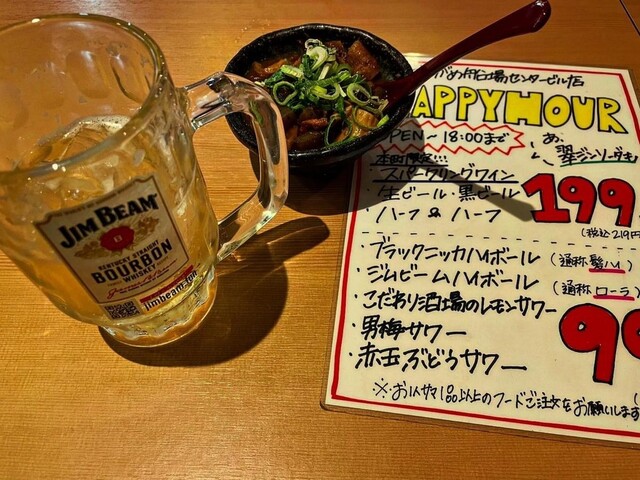 センタービル店
HAPPY HOUR
OPEN~18:00まで
本町限定!!!
・スパークリングワイン
・生ビール・黒ビール
・ハーフ&ハーフ
翠ジンソーダも
199
(税込219円
・ブラックニッカハイボール (通称 髭ハイ)
・ジムビームハイボール (通称 ローラ)
・こだわり酒場のレモンサワー
・男梅サワー
・赤玉ぶどうサワー
99
※お1人サマ1品以上のフードご注文をお願いします
JIM BEAM
KENTUCKY STRAIGHT
BOURBON
WHISKEY
jimbeam-jp